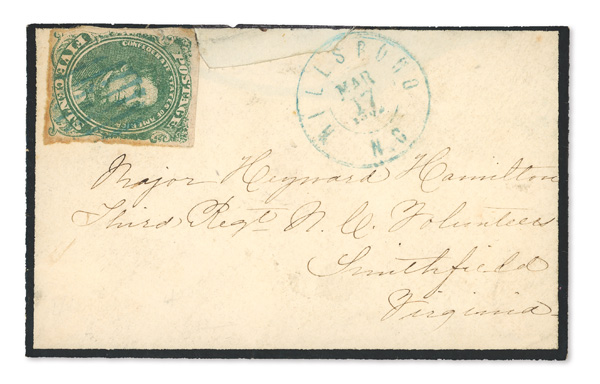 CONFEDERATE STATES OF AMERICA
POSTAGE
HILLSBORO
MAR
17
N.C
Major Heyward Hamilton
Third Regt N. C. Volunteers
Smithfield
Virginia